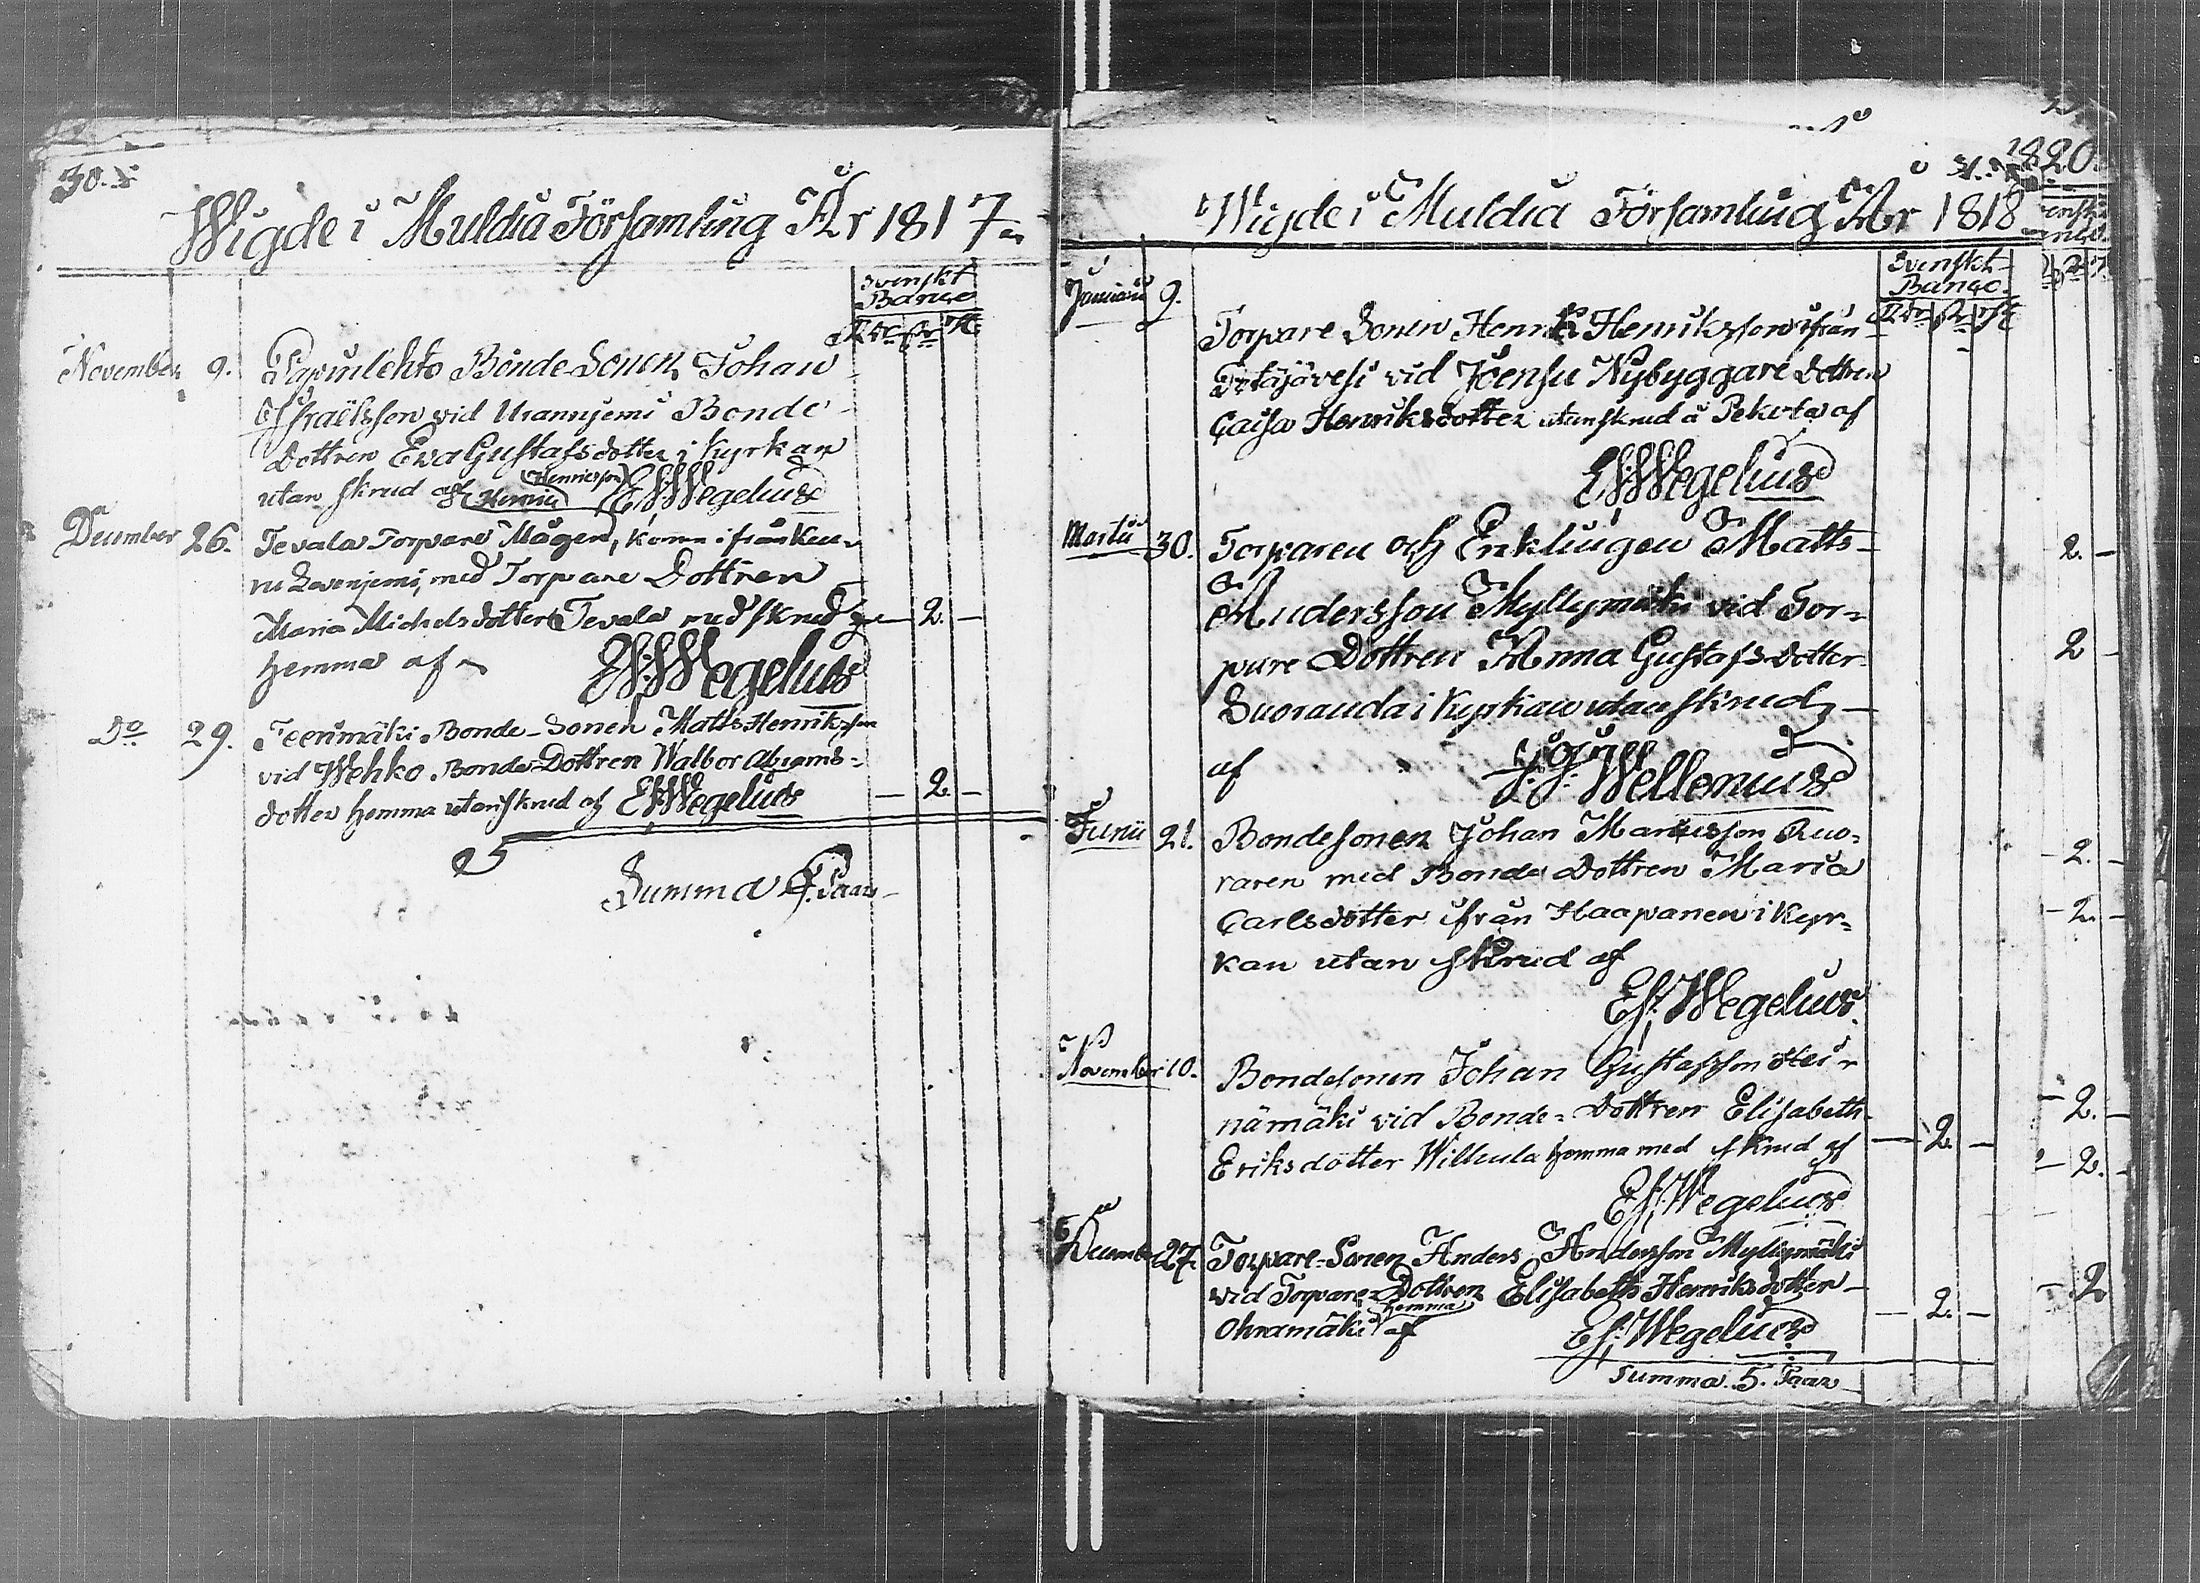 30.
Wigde i Muldia Församling År 1817
Svenskt
Banco
November 9. Bonde Sonen Johan
Israelsson vid Urannjemi Bonde
Dottren Eva Gustafsdotter i Kyrkan
utan skrud af Henric Henricsson E: Wegelius
December 26. Tevala Torpare Mågen, komn ifrån Keu-
ru med Torpare Dottren
Maria Michelsdotter Tevala med skrud — 2. —
hemma af Wegelius
Do 29. Teerimäki Bonde-Sonen Matts Henriksson
vid Wehko Bonde Dottren Walbor Abrams-
dotter hemma utan skrud af E: Wegelius — 2 —
Summa Paar
Wigde i Muldia Församling År 1818
Svenskt
Banco
Januarii 9. Torpare Sonen Henrik Henriksson ifrån
vid Joensu Nybyggare Dottren
Caisa Henriksdotter utan skrud å Pekola af
E: Wegelius
Martii 30. Torparen och Enklingen Matts
Andersson Myllymäki vid Tor-
pare Dottren Anna Gustafs Dotter
Suoranda i Kyrkan utan skrud
af Wellenius
Junii 21. Bondesonen Johan Mariusson Ruo-
raren med Bonde Dottren Maria
Carlsdotter ifrån Haapanen i Kyr-
kan utan skrud af
Es: Wegelius
November 10. Bondesonen Johan Gustafsson Hei-
nämäki vid Bonde-Dottren Elisabeth
Eriksdotter Willeula hemma med skrud af — 2. —
Es: Wegelius
December 27. Torpare-Sonen Anders Andersson Myllymäki
vid Torpare Dottren Elisabeth Henriksdotter
Ohramäki hemma af Es: Wegelius — 2. —
Summa 5. Paar
1820.
2. —
2 —
— 2. —
— 2. —
— 2. —
— 2. —
2